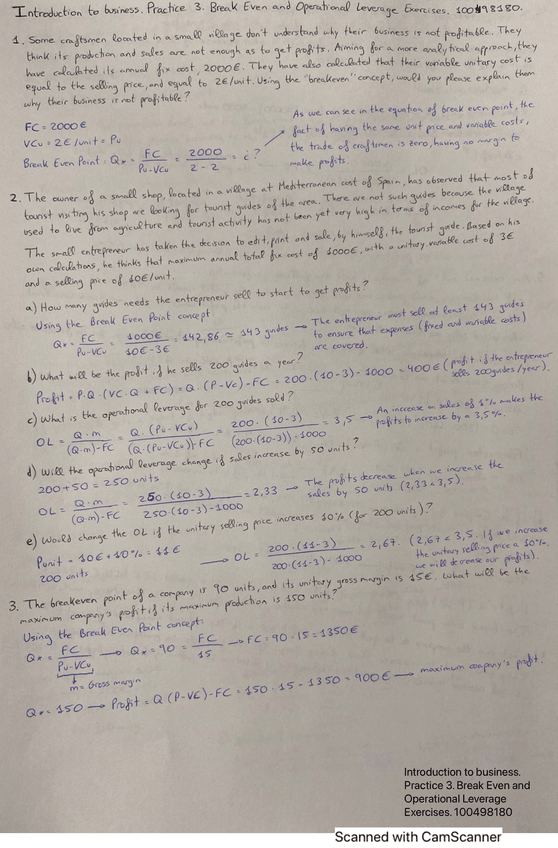 Introduction to business. Practice 3. Break Even and Operational Leverage Exercises. 100498180.
1. Some craftsmen located in a small village don't understand why their business is not profitable. They
think its production and sales are not enough as to get profits. Aiming for a more analytical approach, they
have calculated its annual fix cost, 2000€. They have also calculated that their variable unitary cost is
equal to the selling price, and equal to 2€/unit. Using the "breakeven" concept, would you please explain them
why their business is not profitable?
FC = 2000€
VCu = 2€/unit = Pu
Break Even Point: Q* = FC / Pu-VCu = 2000 / 2-2 = ¿?
As we can see in the equation of break even point, the
fact of having the same unit price and variable costs,
the trade of craftsmen is zero, having no margin to
make profits.
2. The owner of a small shop, located in a village at Mediterranean cost of Spain, has observed that most of
tourist visiting his shop are looking for tourist guides of the area. There are not such guides because the village
used to live from agriculture and tourist activity has not been yet very high in terms of incomes for the village.
The small entrepreneur has taken the decision to edit, print and sale, by himself, the tourist guide. Based on his
own calculations, he thinks that maximum annual total fix cost of 1000€, with a unitary variable cost of 3€
and a selling price of 10€/unit.
a) How many guides needs the entrepreneur sell to start to get profits?
Using the Break Even Point concept
Q* = FC / Pu-VCu = 1000€ / 10€-3€ = 142,86 ≈ 143 guides → The entrepreneur must sell at least 143 guides
to ensure that expenses (fixed and variable costs)
are covered.
b) What will be the profit if he sells 200 guides a year?
Profit = P·Q·(VC·Q+FC) = Q·(P-Vc)-FC = 200·(10-3)-1000 = 400€ (profit if the entrepreneur
sells 200 guides/year).
c) What is the operational leverage for 200 guides sold?
OL = Q·m / (Q·m)-FC = Q·(Pu-VCu) / (Q·(Pu-VCu))-FC = 200·(10-3) / (200·(10-3))-1000 = 3,5 → An increase in sales of 1% makes the
profits to increase by a 3,5%.
d) Will the operational leverage change if sales increase by 50 units?
200+50 = 250 units
OL = Q·m / (Q·m)-FC = 250·(10-3) / 250·(10-3)-1000 = 2,33 → The profits decrease when we increase the
sales by 50 units (2,33<3,5).
e) Would change the OL if the unitary selling price increases 10% (for 200 units)?
Punit = 10€+10% = 11€
200 units
→ OL = 200·(11-3) / 200·(11-3)-1000 = 2,67. (2,67<3,5. If we increase
the unitary selling price a 10%,
we will decrease our profits).
3. The breakeven point of a company is 90 units, and its unitary gross margin is 15€. What will be the
maximum company's profit if its maximum production is 150 units?
Using the Break Even Point concept:
Q* = FC / Pu-VCu → Q* = 90 = FC / 15 → FC = 90·15 = 1350€
m = Gross margin
Q* = 150 → Profit = Q(P-VC)-FC = 150·15-1350 = 900€ → maximum company's profit.
Introduction to business.
Practice 3. Break Even and
Operational Leverage
Exercises. 100498180
Scanned with CamScanner